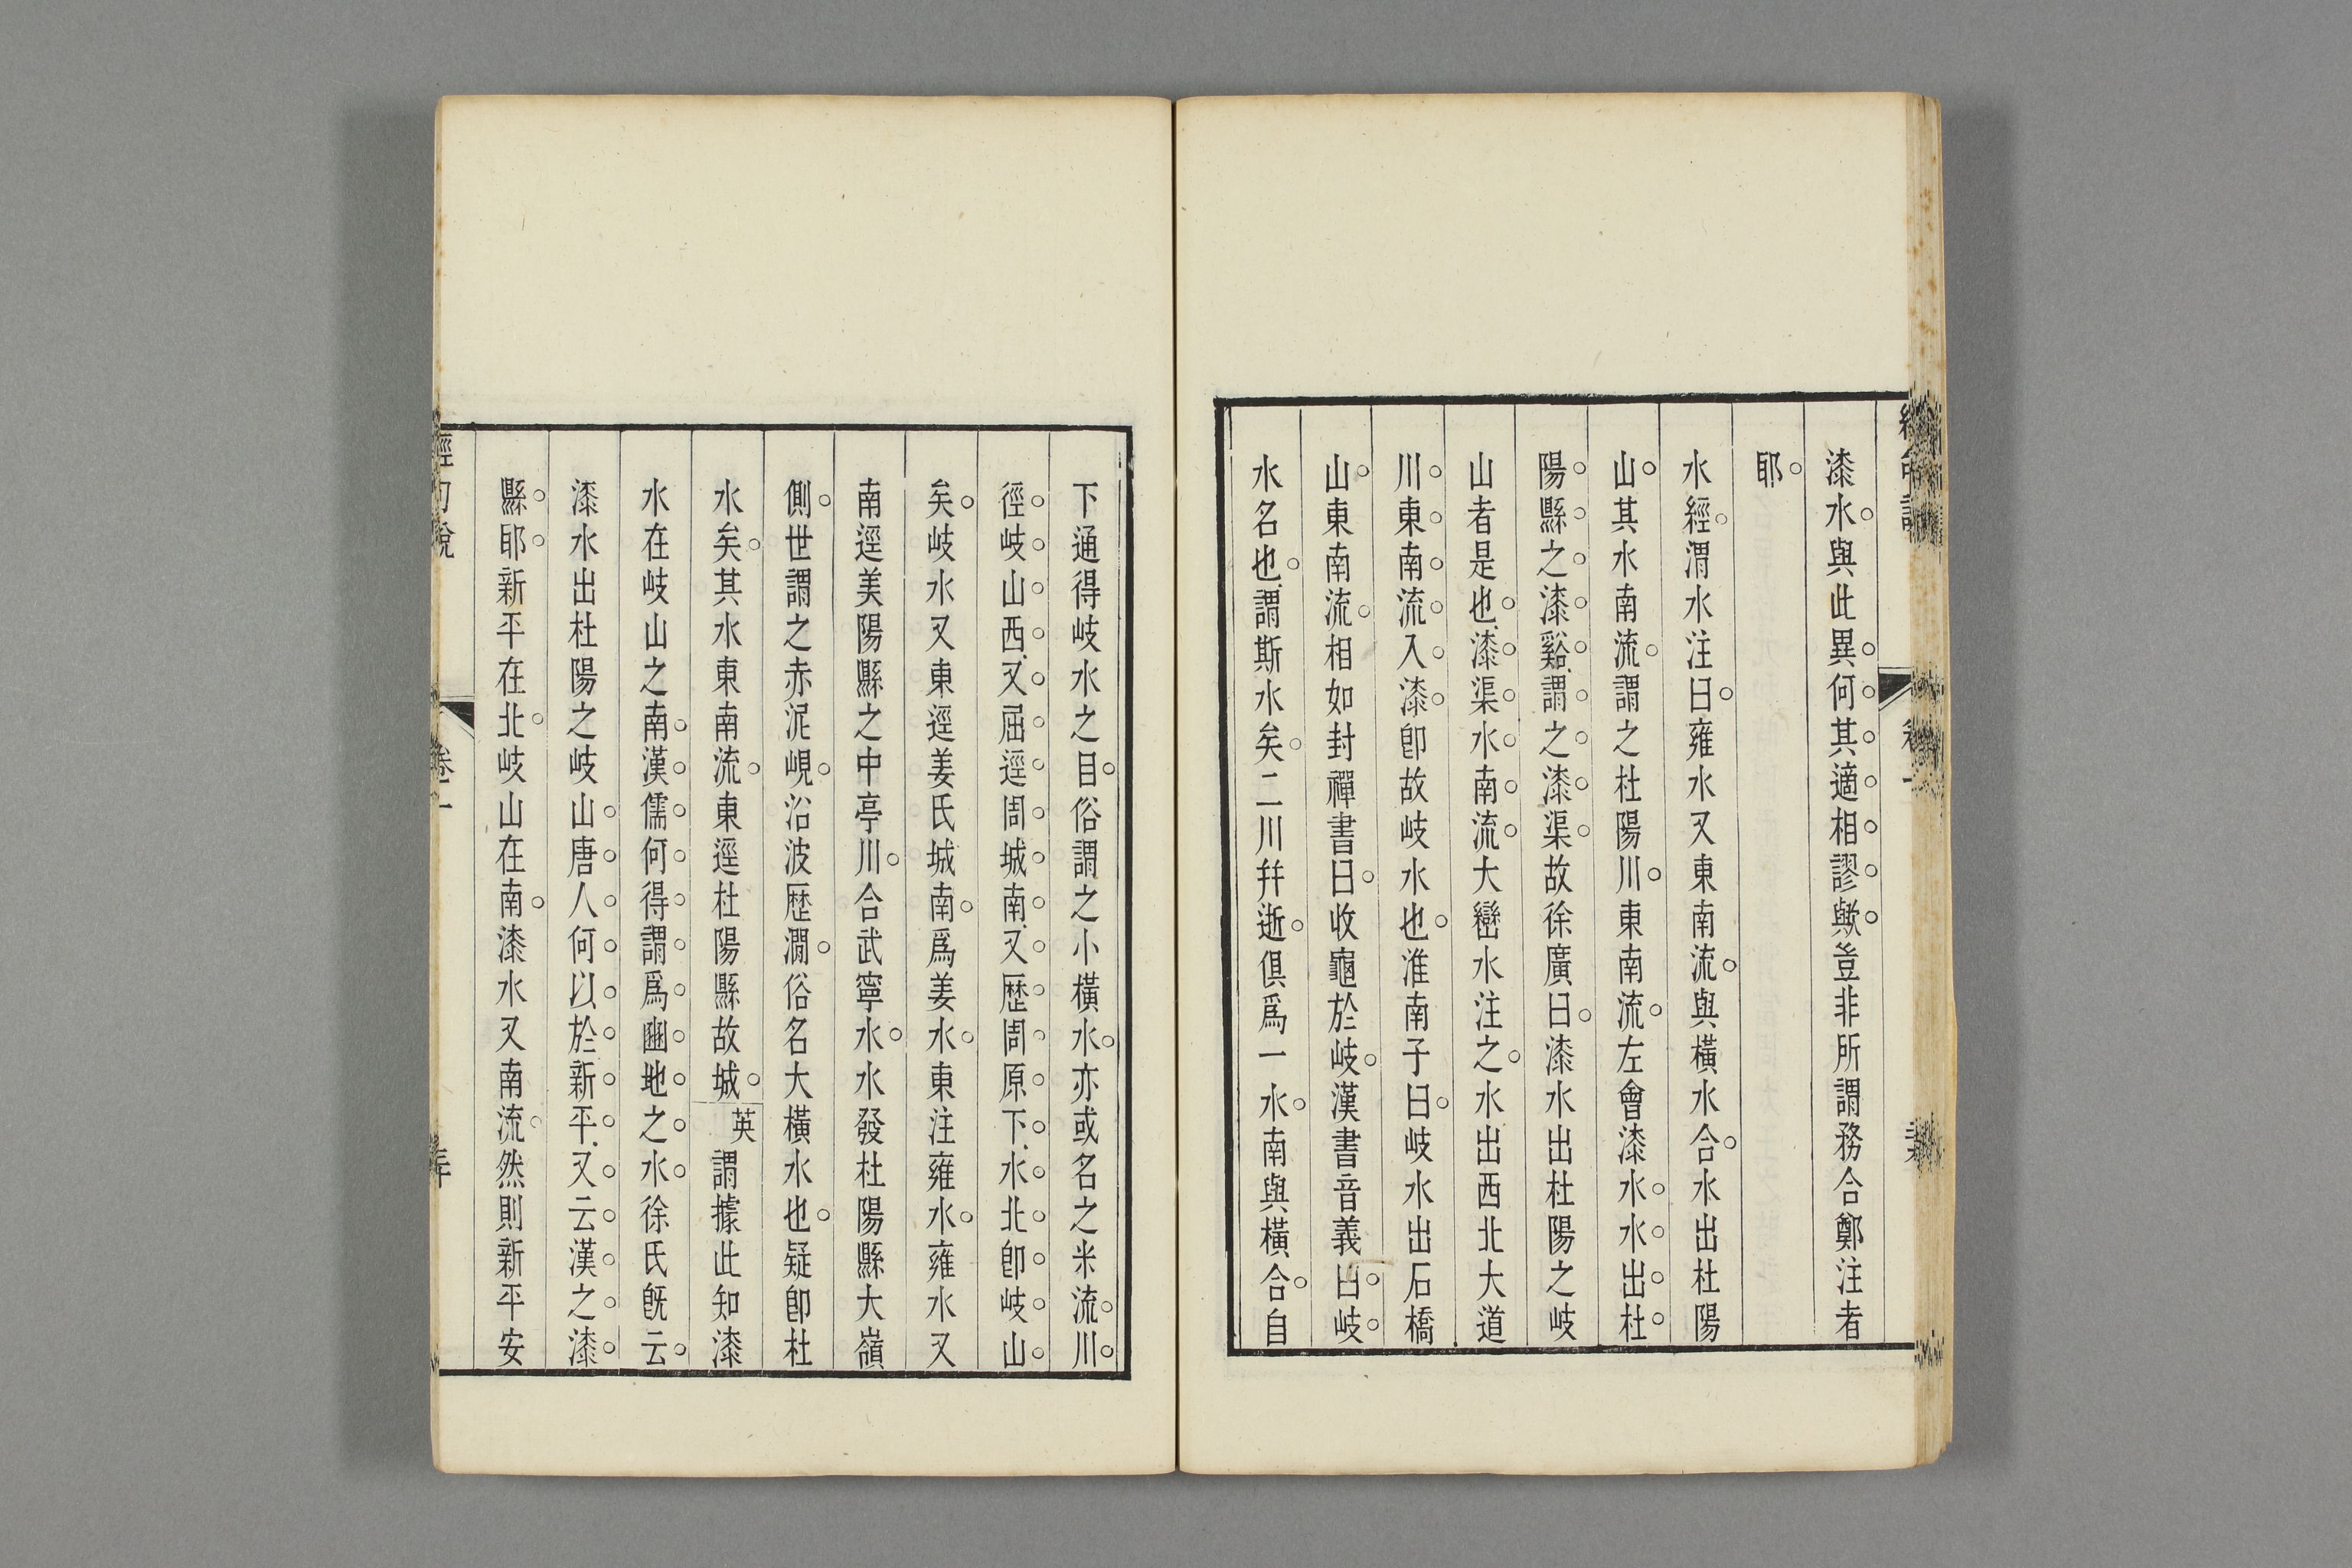 漆水與此異何其適相謬歟豈非所謂務合鄭注者
耶
水經渭水注曰雍水又東南流與橫水合水出杜陽
山其水南流謂之杜陽川東南流左會漆水水出杜
陽縣之漆谿謂之漆渠故徐廣曰漆水出杜陽之岐
山者是也漆渠水南流大巒水注之水出西北大道
川東南流入漆卽故岐水也淮南子曰岐水出石橋
山東南流相如封禪書曰收龜於岐漢書音義曰岐
水名也謂斯水矣二川幷逝俱爲一水南與橫合自
下通得岐水之目俗謂之小橫水亦或名之米流川
徑岐山西又屈逕周城南又歷周原下水北卽岐山
矣岐水又東逕姜氏城南爲姜水東注雍水雍水又
南逕美陽縣之中亭川合武寧水水發杜陽縣大嶺
側世謂之赤泥峴沿波歷澗俗名大橫水也疑卽杜
水矣其水東南流東逕杜陽縣故城英謂據此知漆
水在岐山之南漢儒何得謂爲豳地之水徐氏旣云
漆水出杜陽之岐山唐人何以於新平又云漢之漆
縣耶新平在北岐山在南漆水又南流然則新平安
經句說
卷一